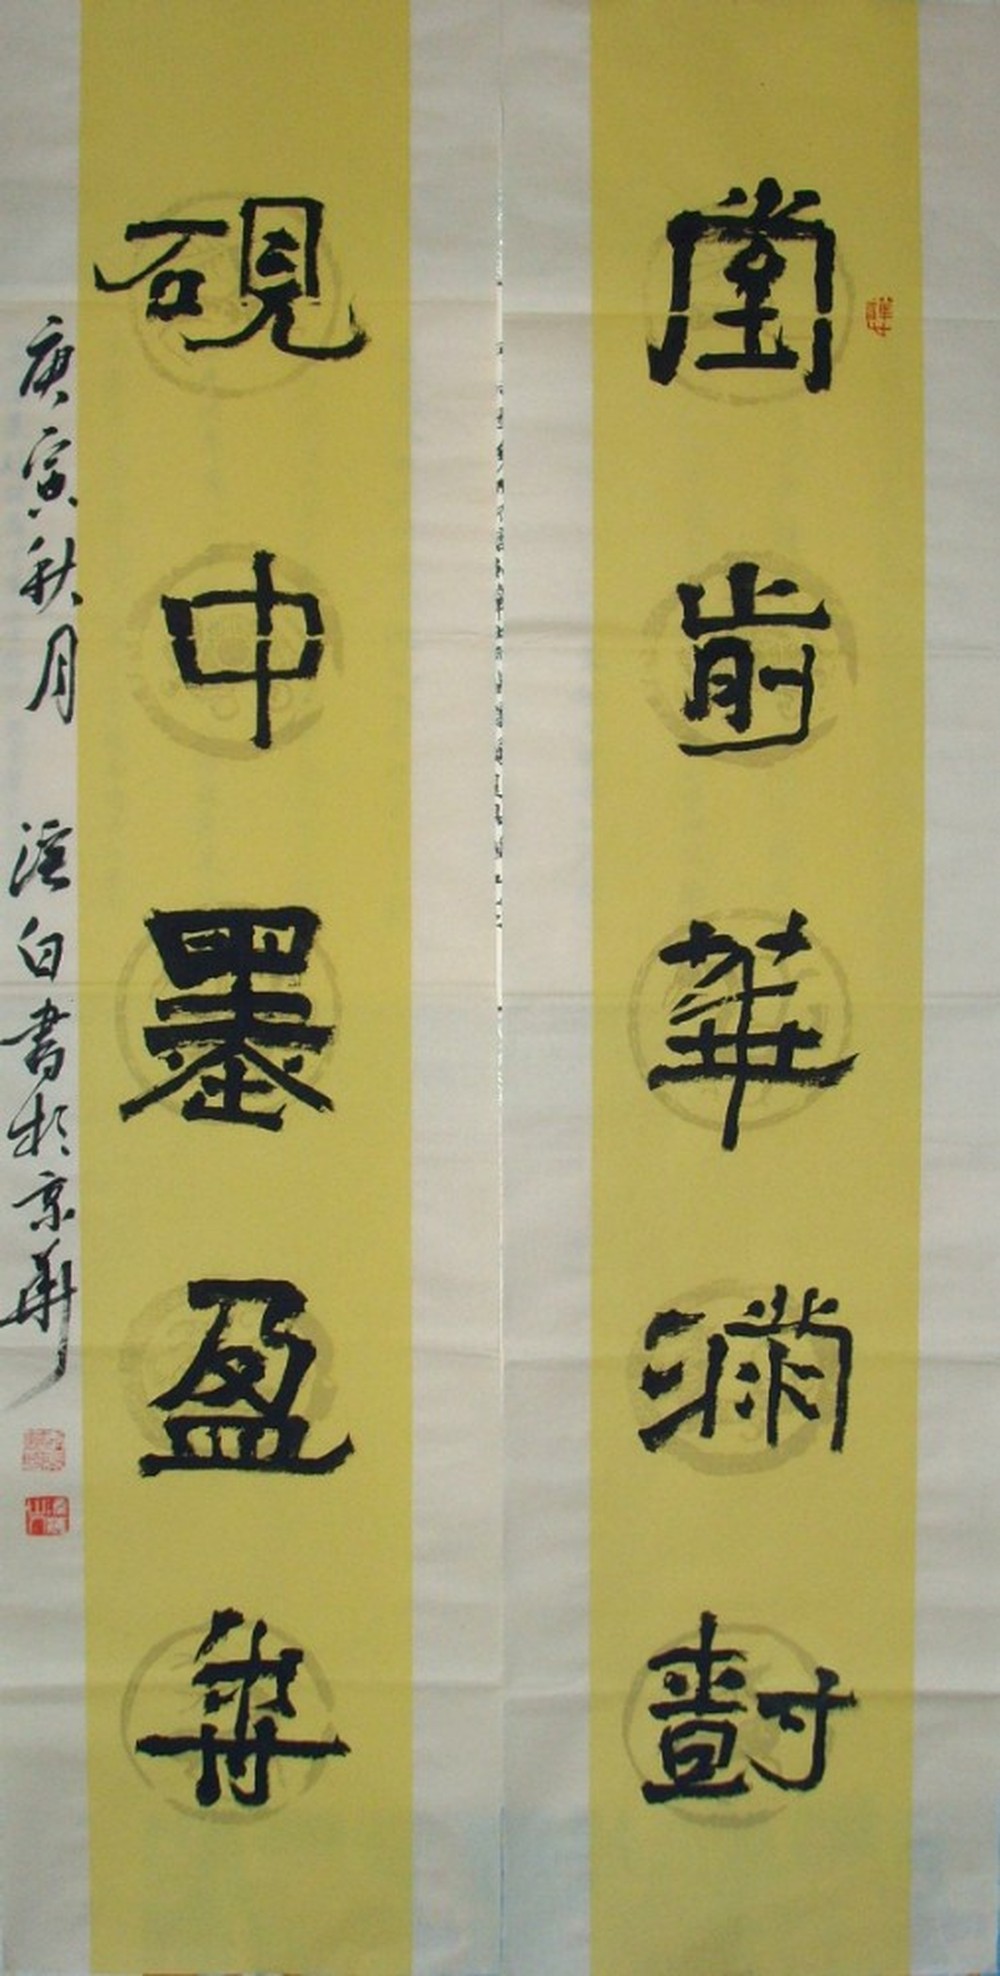 堂前華滿樹
硯中墨盈
庚寅秋月 白書於京華